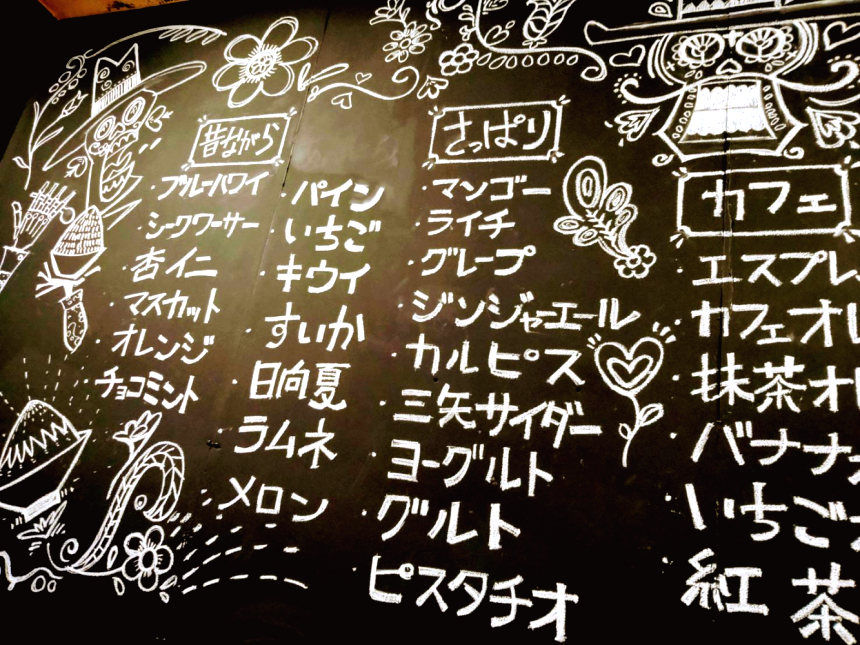 昔ながら
・ブルーハワイ
・シークワーサー
・杏イニ
・マスカット
・オレンジ
・チョコミント
・パイン
・いちご
・キウイ
・すいか
・日向夏
・ラムネ
・メロン
さっぱり
・マンゴー
・ライチ
・グレープ
・ジンジャーエール
・カルピス
・三矢サイダー
・ヨーグルト
・グルト
・ピスタチオ
カフェ
・エスプレ
・カフェオレ
・抹茶オレ
・バナナ
・いちご
・紅茶